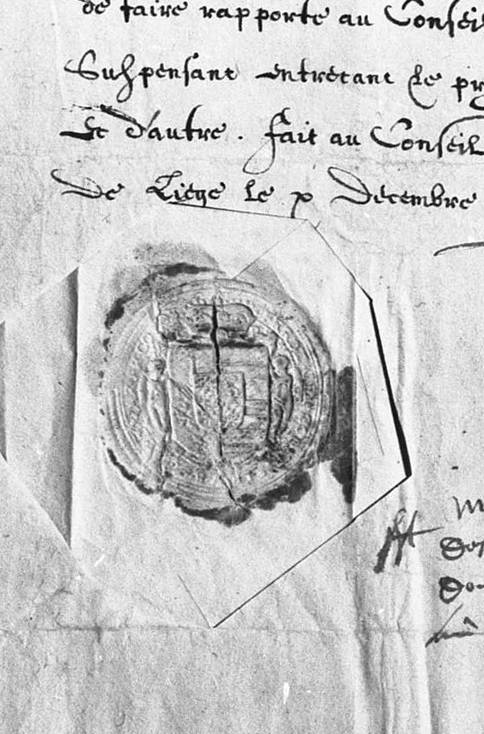 de faire rapporte au Conseil
Suspensant entretant le pr
Et d'autre. Fait au Conseil
De Liege le x Decembre